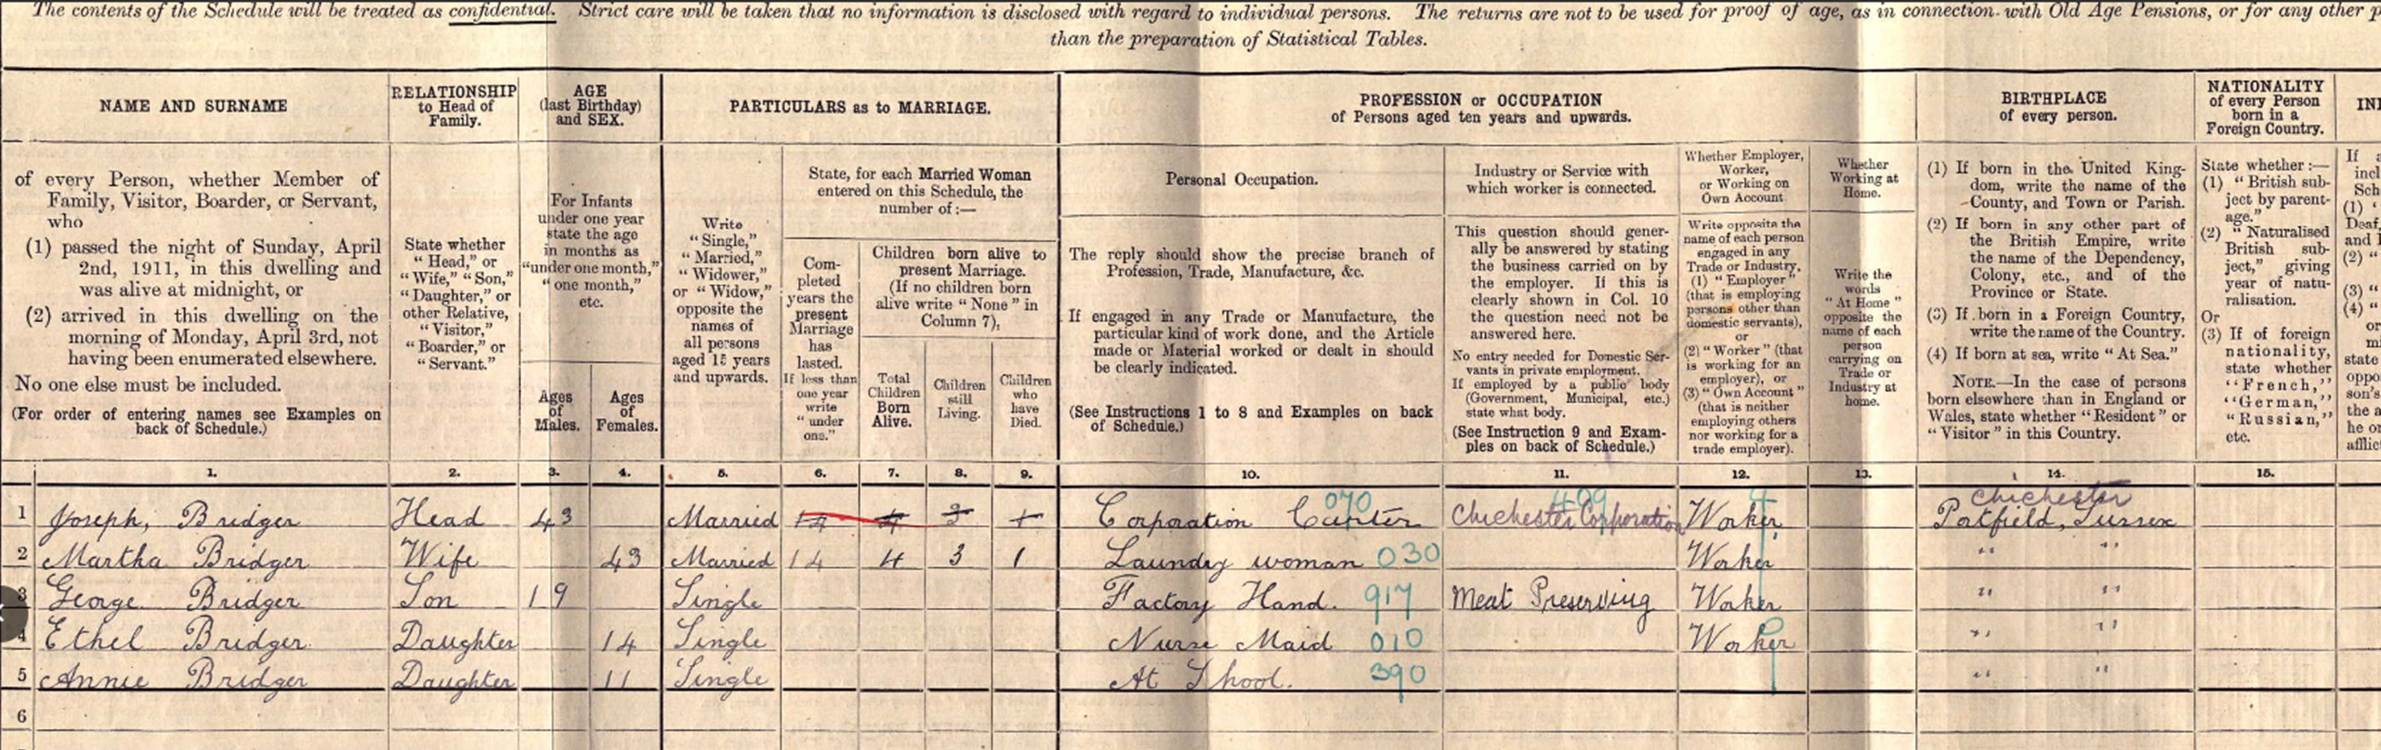 The contents of the Schedule will be treated as confidential. Strict care will be taken that no information is disclosed with regard to individual persons. The returns are not to be used for proof of age, as in connection with Old Age Pensions, or for any other p
than the preparation of Statistical Tables.
NAME AND SURNAME
of every Person, whether Member of
Family, Visitor, Boarder, or Servant,
who
(1) passed the night of Sunday, April
2nd, 1911, in this dwelling and
was alive at midnight, or
(2) arrived in this dwelling on the
morning of Monday, April 3rd, not
having been enumerated elsewhere.
No one else must be included.
(For order of entering names see Examples on
back of Schedule.)
RELATIONSHIP
to Head of
Family.
State whether
"Head," or
"Wife," "Son,"
"Daughter," or
other Relative,
"Visitor,"
"Boarder," or
"Servant."
AGE
(last Birthday)
and SEX.
For Infants
under one year
state the age
in months as
"under one month,"
"one month,"
etc.
Ages
of
Males.
Ages
of
Females.
PARTICULARS as to MARRIAGE.
Write
"Single,"
"Married,"
"Widower,"
or "Widow,"
opposite the
names of
all persons
aged 15 years
and upwards.
State, for each Married Woman
entered on this Schedule, the
number of :—
Com-
pleted
years the
present
Marriage
has
lasted.
If less than
one year
write
"under
one."
Children born alive to
present Marriage.
(If no children born
alive write "None" in
Column 7).
Total
Children
Born
Alive.
Children
still
Living.
Children
who
have
Died.
PROFESSION or OCCUPATION
of Persons aged ten years and upwards.
Personal Occupation.
The reply should show the precise branch of
Profession, Trade, Manufacture, &c.
If engaged in any Trade or Manufacture, the
particular kind of work done, and the Article
made or Material worked or dealt in should
be clearly indicated.
(See Instructions 1 to 8 and Examples on back
of Schedule.)
Industry or Service with
which worker is connected.
This question should gener-
ally be answered by stating
the business carried on by
the employer. If this is
clearly shown in Col. 10
the question need not be
answered here.
No entry needed for Domestic Ser-
vants in private employment.
If employed by a public body
(Government, Municipal, etc.)
state what body.
(See Instruction 9 and Exam-
ples on back of Schedule.)
Whether Employer,
Worker,
or Working on
Own Account
Write opposite the
name of each person
engaged in any
Trade or Industry,
(1) "Employer"
(that is employing
persons other than
domestic servants),
or
(2) "Worker" (that
is working for an
employer), or
(3) "Own Account"
(that is neither
employing others
nor working for a
trade employer).
Whether
Working at
Home.
Write the
words
"At Home"
opposite the
name of each
person
carrying on
Trade or
Industry at
home.
BIRTHPLACE
of every person.
(1) If born in the United King-
dom, write the name of the
County, and Town or Parish.
(2) If born in any other part of
the British Empire, write
the name of the Dependency,
Colony, etc., and of the
Province or State.
(3) If born in a Foreign Country,
write the name of the Country.
(4) If born at sea, write "At Sea."
NOTE.—In the case of persons
born elsewhere than in England or
Wales, state whether "Resident" or
"Visitor" in this Country.
NATIONALITY
of every Person
born in a
Foreign Country.
State whether :—
(1) "British sub-
ject by parent-
age."
(2) "Naturalised
British sub-
ject," giving
year of natu-
ralisation.
Or
(3) If of foreign
nationality,
state whether
"French,"
"German,"
"Russian,"
etc.
IN
If a
incl
Sch
(1) "
Deaf,
and I
(2) "
(3) "
(4) "
or
mi
state
oppo
son's
the a
he or
afflic
1. 2. 3. 4. 5. 6. 7. 8. 9. 10. 11. 12. 13. 14. 15.
1 Joseph, Bridger Head 43 Married 14 4 3 1 Corporation Carter 070 Chichester Corporation 409 Worker Chichester
Portfield, Sussex
2 Martha Bridger Wife 43 Married 14 4 3 1 Laundry woman 030 Worker " "
3 George Bridger Son 19 Single Factory Hand. 917 Meat Preserving Worker " "
4 Ethel Bridger Daughter 14 Single Nurse Maid 010 Worker " "
5 Annie Bridger Daughter 11 Single At Shool. 390 " "
6